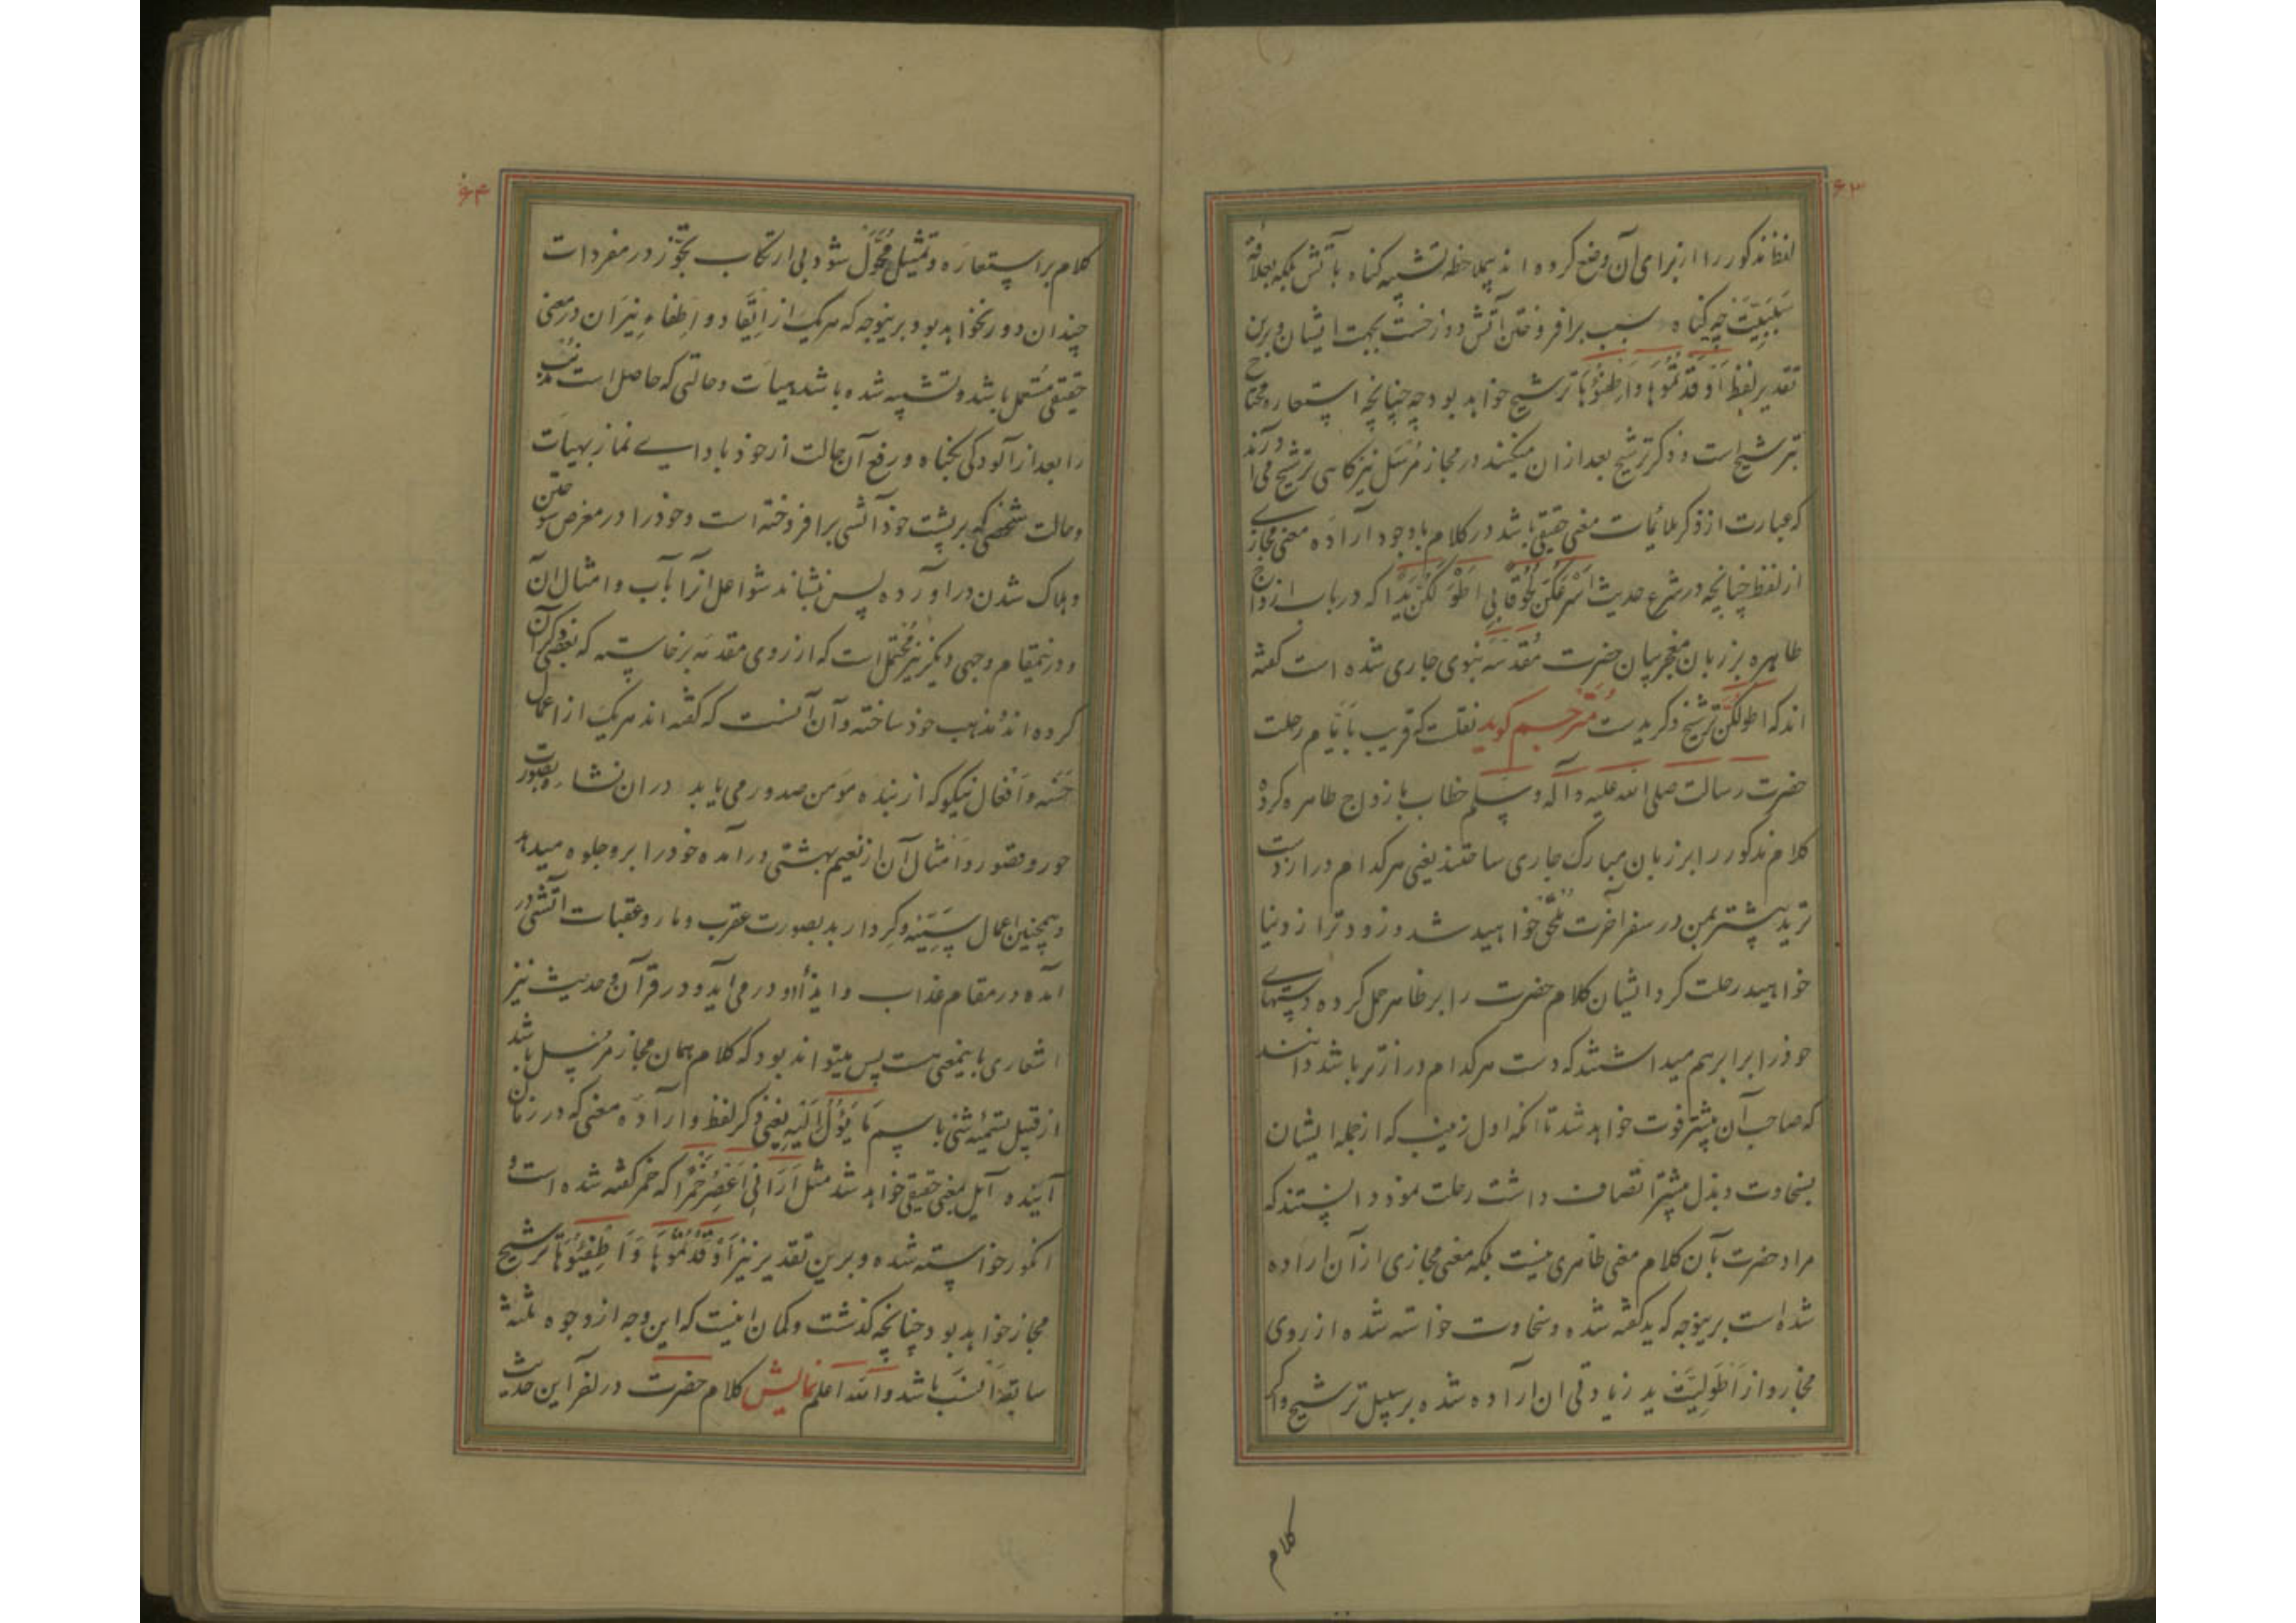 ۶۳
لفظ مذکور را از برای آن وضع کرده اند بملاحظه تشبیه کناه بآتش بلکه بعلاقهٔ
سَبَبِیَّت چه کناه سبب برافروختن آتش دوزخست بجهت ایشان و برین
تقدیر لفظ اَوْقَدْتُمُوهَا وَاَطْفِئُوهَا ترشیح خواهد بود چه چنانچه استعاره محتاج
بترشیح است و ذکر ترشیح بعد ازان میکنند در مجاز مُرْسَل نیز کاهی ترشیح می آورند
که عبارت از ذکر ملائمات معنی حقیقی باشد در کلام باوجود اراده معنی مجازی
از لفظ چنانچه در شرع حدیث اَسْرَعُکُنَّ لُحُوقًا بِی اَطْوَلُکُنَّ یَدًا که در باب ازواج
طاهره بر زبان معجزبیان حضرت مُقَدَّسَه نبوی جاری شده است کفته
اند که اطولکنّ ترشیح ذکر یدست مترجم کوید نقلست که قریب باَیّام رحلت
حضرت رسالت صلی الله علیه وآله وسلم خطاب بازواج طاهره کرده
کلام مذکور را بر زبان مبارک جاری ساختند یعنی هرکدام دراز دست
ترید پیشتر بمن در سفر آخرت مُلْحَق خواهید شد و زودتر از دنیا
خواهید رحلت کرد ایشان کلام حضرت را بر ظاهر حمل کرده دستهای
خود را برابر هم میداشتند که دست هرکدام درازتر باشد دانند
که صاحب آن پیشتر فوت خواهد شد تا انکه اول زینب که از جمله ایشان
بسخاوت و بذل بیشتر اتصاف داشت رحلت نمود دانستند که
مراد حضرت بآن کلام معنی ظاهری نیست بلکه معنی مجازی از آن اراده
شده است برینوجه که ید کفته شده و سخاوت خواسته شده از روی
مجاز و از اَطْوَلِیَّت ید زیادتی ان اراده شده بر سبیل ترشیح و اکر
کلام
۶۴
کلام بر استعاره و تمثیل مَحْمُول شود بی ارتکاب تجوّز در مفردات
چندان دور نخواهد بود برینوجه که هریک از اِیقَاد و اِطْفَاءِ نِیرَان در معنی
حقیقی مُسْتَعمل باشد و تشبیه شده باشد هیأت و حالتی که حاصل است مُذْنِب
را بعد از آلودکی بکناه و رفع آن حالت از خود بادای نماز بهیأت
و حالت شخصی که بر پشت خود آتشی برافروخته است و خود را در معرض سوختن
و هلاک شدن دراورده پس بنشاند شواعل انرا بآب و امثال ان
و درینمقام وجهی دیکر نیز مُحْتَمَل است که از روی مقدمه برخاسته که بعضی ذکر آن
کرده اند و مذهب خود ساخته و آن آنست که کفته اند هریک از اعمال
حَسَنه و اَفْعَال نیکو که از بنده مؤمن صدور می یابد دران نشاء بصورت
حور و قصور و امثال آن از نعیم بهشتی درآمده خود را برو جلوه میدهد
و همچنین اعمال سَیِّئه و کِردار بد بصورت عقرب و مار و عقبات آتشی در
آمده در مقام عذاب و ایذاء او در می آید و در قرآن و حدیث نیز
اشعاری باینمعنی هست پس میتواند بود که کلام همان مجاز مُرْسَل باشد
از قبیل تسمیه شئی باسم مَا یَؤُلُ اِلَیْهِ یعنی ذکر لفظ و اراده معنی که در زمان
آینده آیل بمعنی حقیقی خواهد شد مثل اَرَانِی اَعْصِرُ خَمْرًا که خمر کفته شده است و
انکور خواسته شده و برین تقدیر نیز اَوْقَدْتُمُوهَا وَاَطْفِئُوهَا ترشیح
مجاز خواهد بود چنانچه کذشت و کمان اینست که این وجه از وجوه ثلثه
سابقه اَنْسَب باشد والله اعلم نمایش کلام حضرت در آخر این حدیث